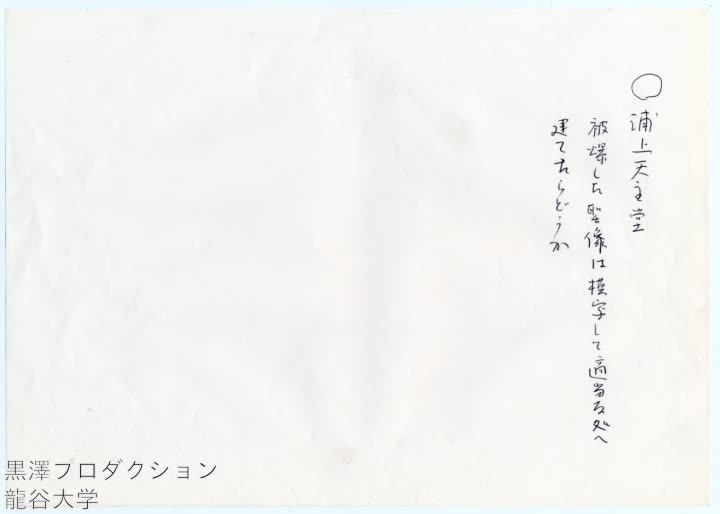 ○浦上天主堂
被爆した聖像は模写して適当な処へ
建てたらどうか
黒澤プロダクション
龍谷大学